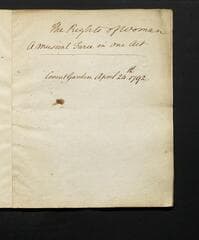 The Rights of Woman
A musical Farce in one Act
Covent Garden April 24th 1792.